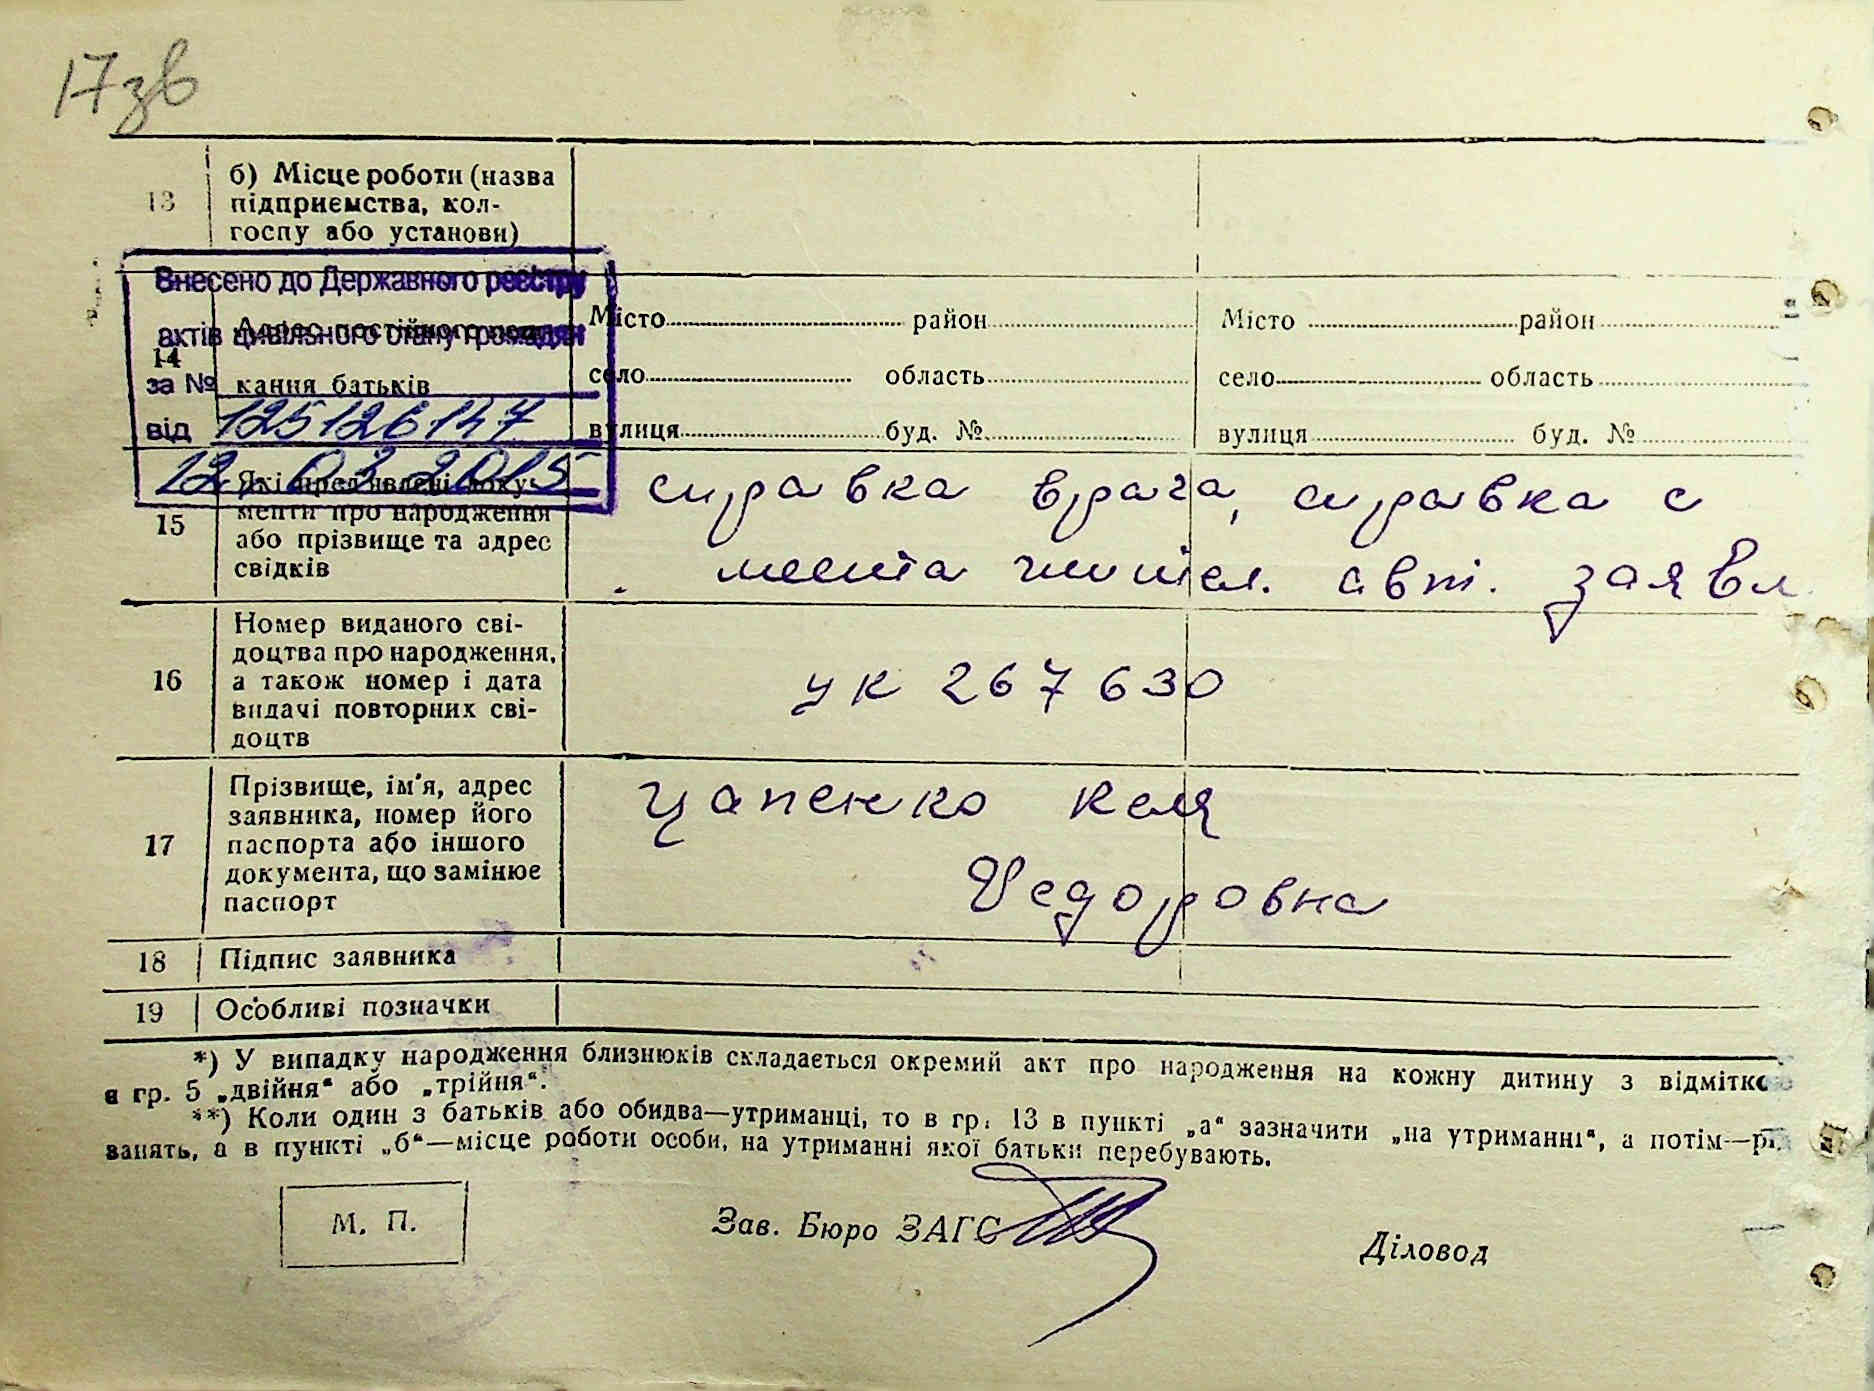 17зв
13
б) Місце роботи (назва
підприємства, кол-
госпу або установи)
Внесено до Державного реєстру
актів цивільного стану громадян
за №
125126147
від
12. 03 2015
14
Адрес постійного
кання батьків
Місто район
село область
вулиця буд. №
Місто район
село область
вулиця буд. №
15
Які пред'явлені доку-
менти про народження
або прізвище та адрес
свідків
справка врача, справка с
места жител. заявл
16
Номер виданого сві-
доцтва про народження,
а також номер і дата
видачі повторних сві-
доцтв
УК 267630
17
Прізвище, ім'я, адрес
заявника, номер його
паспорта або іншого
документа, що замінює
паспорт
Цапенко
Федоровна
18
Підпис заявника
19
Особливі позначки
*) У випадку народження близнюків складається окремий акт про народження на кожну дитину з відмітко
в гр. 5 „двійня“ або „трійня“.
**) Коли один з батьків або обидва—утриманці, то в гр. 13 в пункті „а“ зазначити „на утриманні“, а потім—рі
занять, а в пункті „б“—місце роботи особи, на утриманні якої батьки перебувають.
М. П.
Зав. Бюро ЗАГС
Діловод